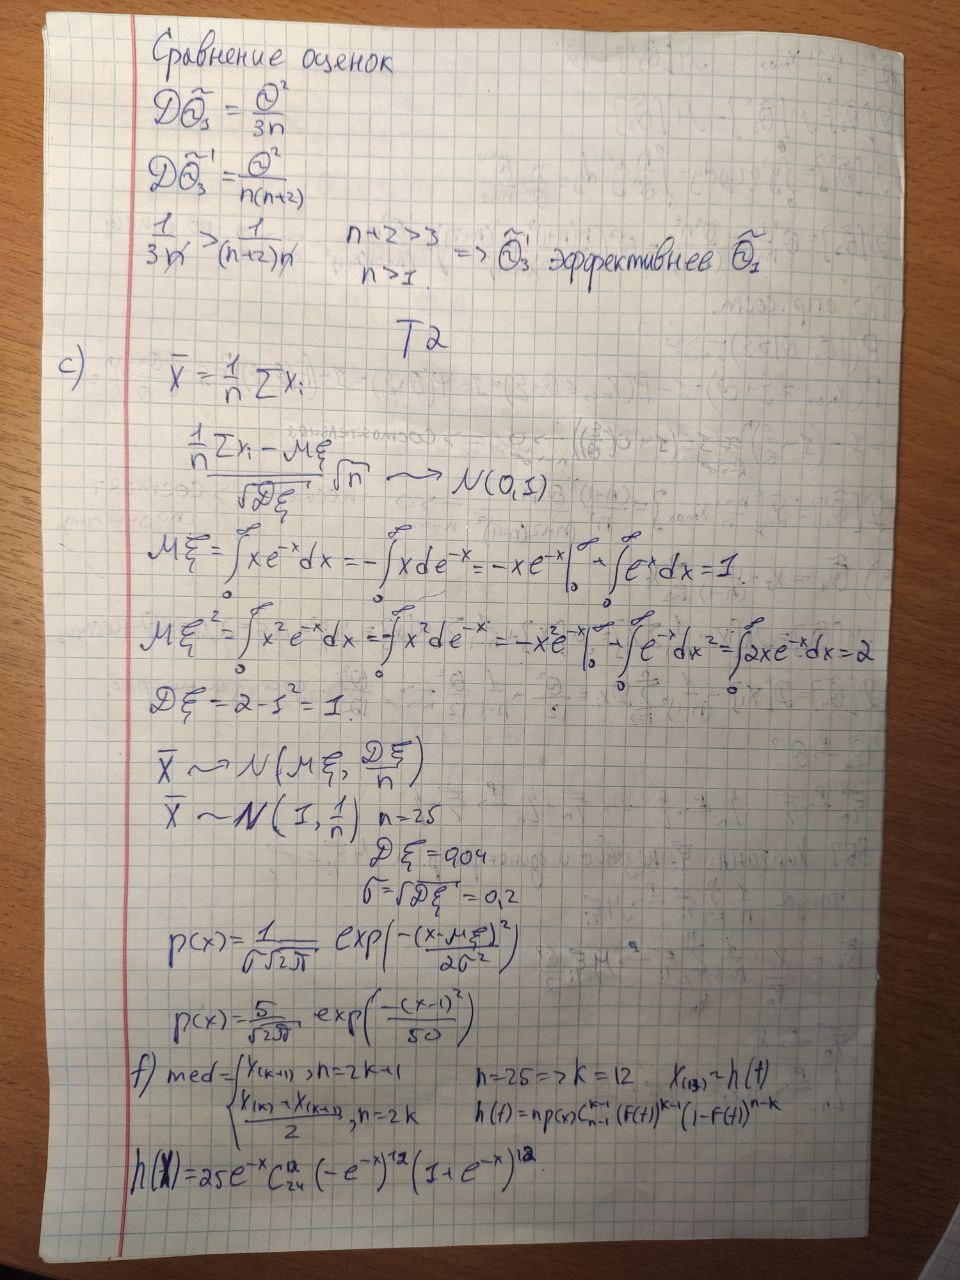 Сравнение оценок
DΘ̃₁ = Θ²/3n
DΘ̃₃' = Θ²/n(n+2)
1/3n > 1/(n+2)n    n+2>3    => Θ̃₃' эффективнее Θ̃₁
n>1
T2
c)    x̄ = 1/n Σxᵢ
(1/n Σxᵢ - Mξ)/√Dξ √n ⇝ N(0,1)
Mξ = ∫₀^∞ xe^(-x)dx = -∫₀^∞ xde^(-x) = -xe^(-x)|₀^∞ + ∫₀^∞ e^(-x)dx = 1.
Mξ² = ∫₀^∞ x²e^(-x)dx = -∫₀^∞ x²de^(-x) = -x²e^(-x)|₀^∞ + ∫₀^∞ e^(-x)dx² = ∫₀^∞ 2xe^(-x)dx = 2
Dξ = 2-1² = 1.
x̄ ⇝ N(Mξ, Dξ/n)
x̄ ~ N(1, 1/n)    n=25
Dξ = 0,04
σ = √Dξ = 0,2
p(x) = 1/(σ√2π) exp(-(x-Mξ)²/2σ²)
p(x) = 5/√2π exp(-(x-1)²/50)
f) med = { x₍ₖ₊₁₎, n=2k+1    n=25 => k=12    X₍₁₃₎ ~ h(t)
(x₍ₖ₎+x₍ₖ₊₁₎)/2, n=2k    h(t) = np(x)C_{n-1}^{k-1}(F(t))^{k-1}(1-F(t))^{n-k}
h(x) = 25e^(-x) C₂₄¹² (-e^(-x))¹² (1+e^(-x))¹².